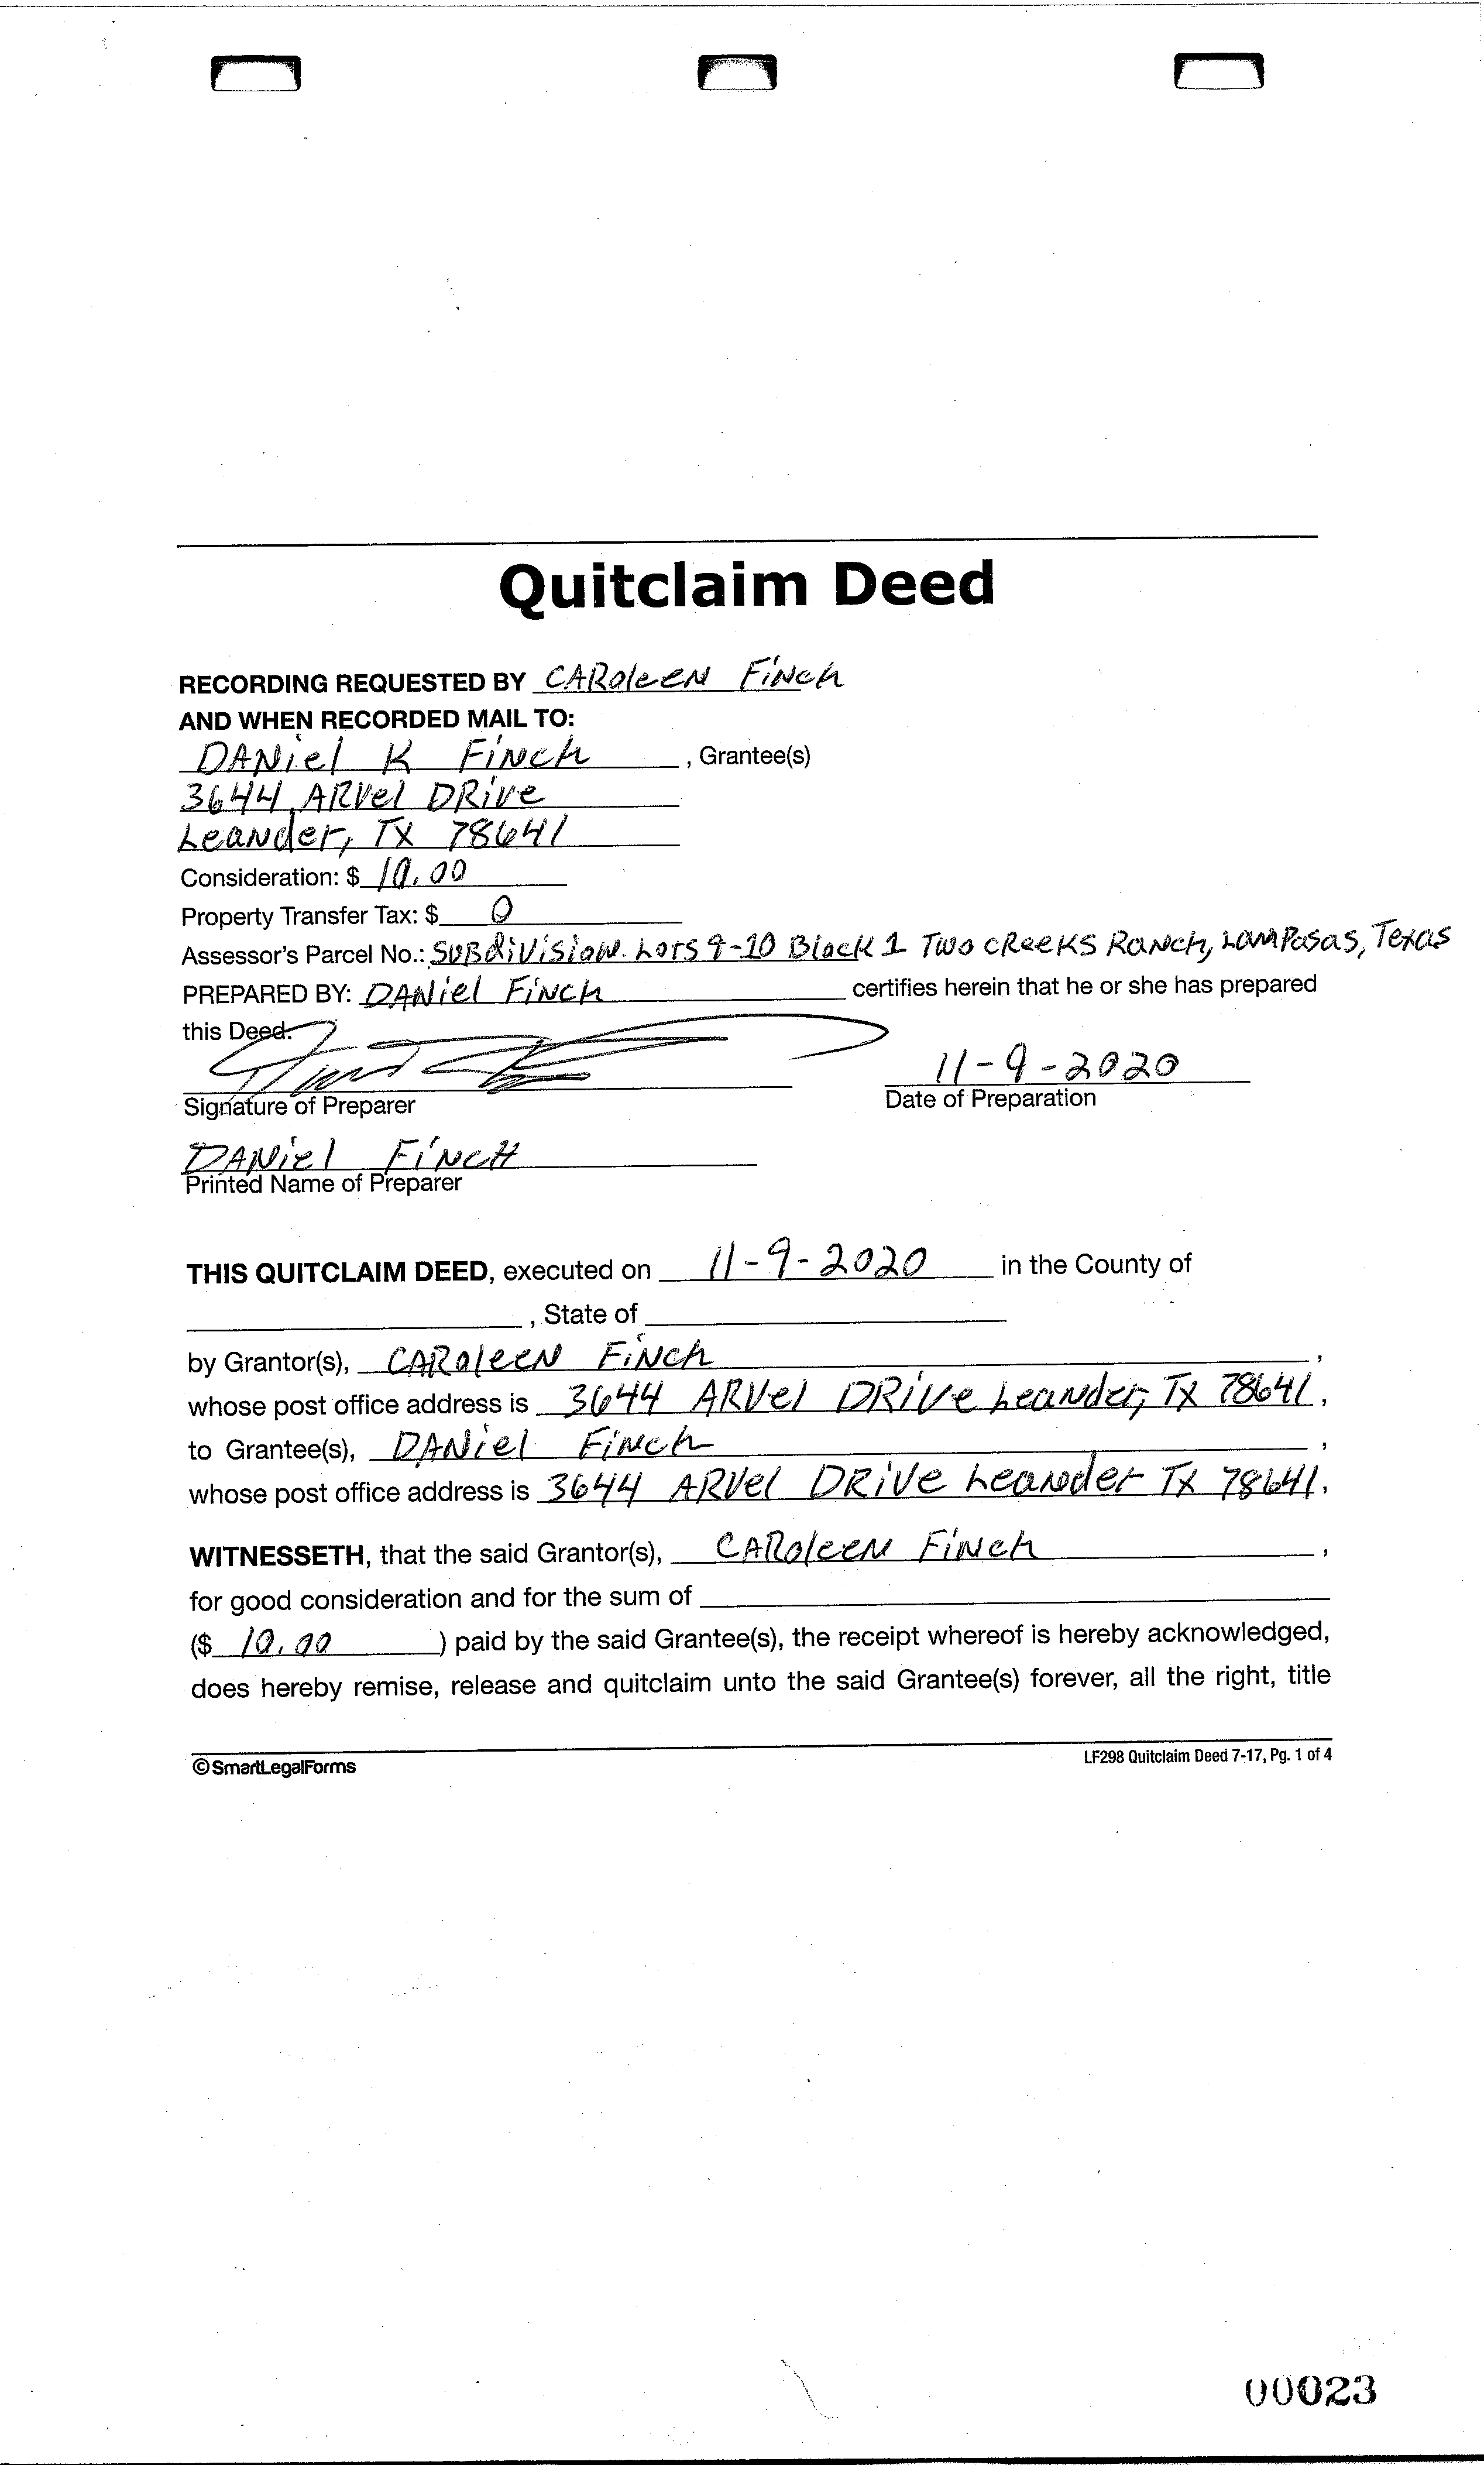 Quitclaim Deed
RECORDING REQUESTED BY CARoleeN FiNch
AND WHEN RECORDED MAIL TO:
DANiel K FiNch, Grantee(s)
3644 ARVel DRive
LeaNder, TX 78641
Consideration: $ 10.00
Property Transfer Tax: $ 0
Assessor's Parcel No.: SUBdiVisioN. LoTS 9-10 Block 1 Two CReeKS RaNch, LamPasas, Texas
PREPARED BY: DANiel FiNch certifies herein that he or she has prepared
this Deed.
11-9-2020
Signature of Preparer Date of Preparation
DANiel FiNcH
Printed Name of Preparer
THIS QUITCLAIM DEED, executed on 11-9-2020 in the County of
, State of
by Grantor(s), CARoleeN FiNch,
whose post office address is 3644 ARVel DRiVe LeaNder, TX 78641,
to Grantee(s), DANiel FiNch,
whose post office address is 3644 ARVel DRiVe LeaNder TX 78641.
WITNESSETH, that the said Grantor(s), CARoleeN FiNch,
for good consideration and for the sum of
($ 10.00) paid by the said Grantee(s), the receipt whereof is hereby acknowledged,
does hereby remise, release and quitclaim unto the said Grantee(s) forever, all the right, title
©SmartLegalForms LF298 Quitclaim Deed 7-17, Pg. 1 of 4
00023